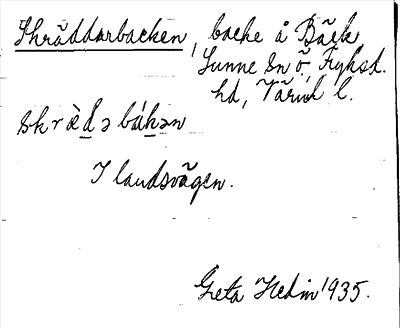 Skräddarbacken, backe å Bäck
Sunne sn ö. Fryksd.
hd, Värml l.
skræ̀d̲ə bák̲ən
I landsvägen.
Greta Hedin 1935.